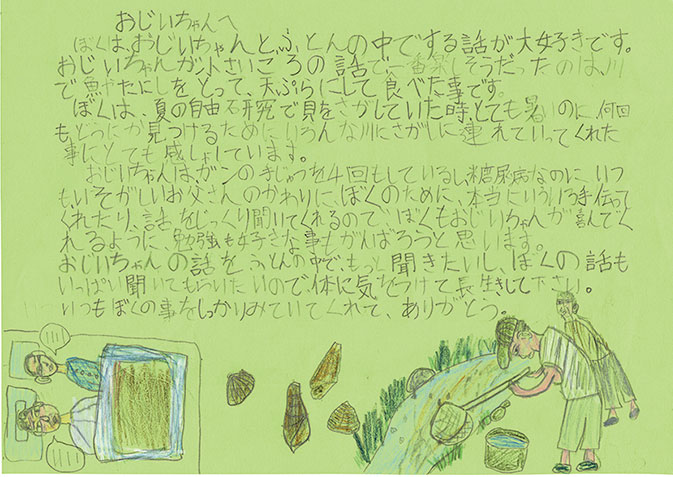 おじいちゃんへ
ぼくは、おじいちゃんとふとんの中でする話が大好きです。
おじいちゃんが小さいころの話で一番楽しそうだったのは、川
で魚やたにしをとって、天ぷらにして食べた事です。
ぼくは、夏の自由研究で貝をさがしていた時、とても暑いのに、何回
もどうにか見つけるためにいろんな川にさがしに連れていってくれた
事にとても感しゃしています。
おじいちゃんは、ガンのきじゅつを4回もしているし、糖尿病なのに、いつ
もいそがしいお父さんのかわりに、ぼくのために、本当にいろいろ手伝って
くれたり、話をじっくり聞いてくれるので、ぼくもおじいちゃんが喜んでく
れるように、勉強も好きな事もがんばろうと思います。
おじいちゃんの話をふとんの中で、もっと聞きたいし、ぼくの話も
いっぱい聞いてもらいたいので、体に気をつけて長生きして下さい。
いつもぼくの事をしっかりみていてくれて、ありがとう。